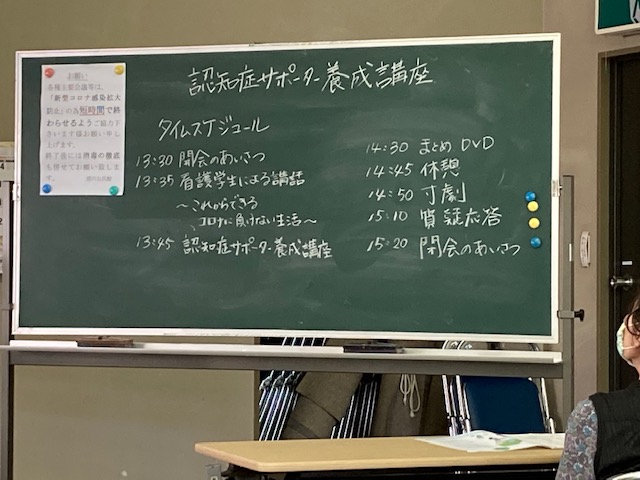 認知症サポーター養成講座
お願い
各種主要会議等は、
「新型コロナ感染拡大
防止」の為短時間で終
わらせるようご協力下
さいます様お願い申し
上げます。
終了後には消毒の徹底
も併せてお願い致しま
す。
タイムスケジュール
13:30 開会のあいさつ
13:35 看護学生による講話
〜これからできる
コロナに負けない生活〜
13:45 認知症サポーター養成講座
14:30 まとめDVD
14:45 休憩
14:50 寸劇
15:10 質疑応答
15:20 閉会のあいさつ